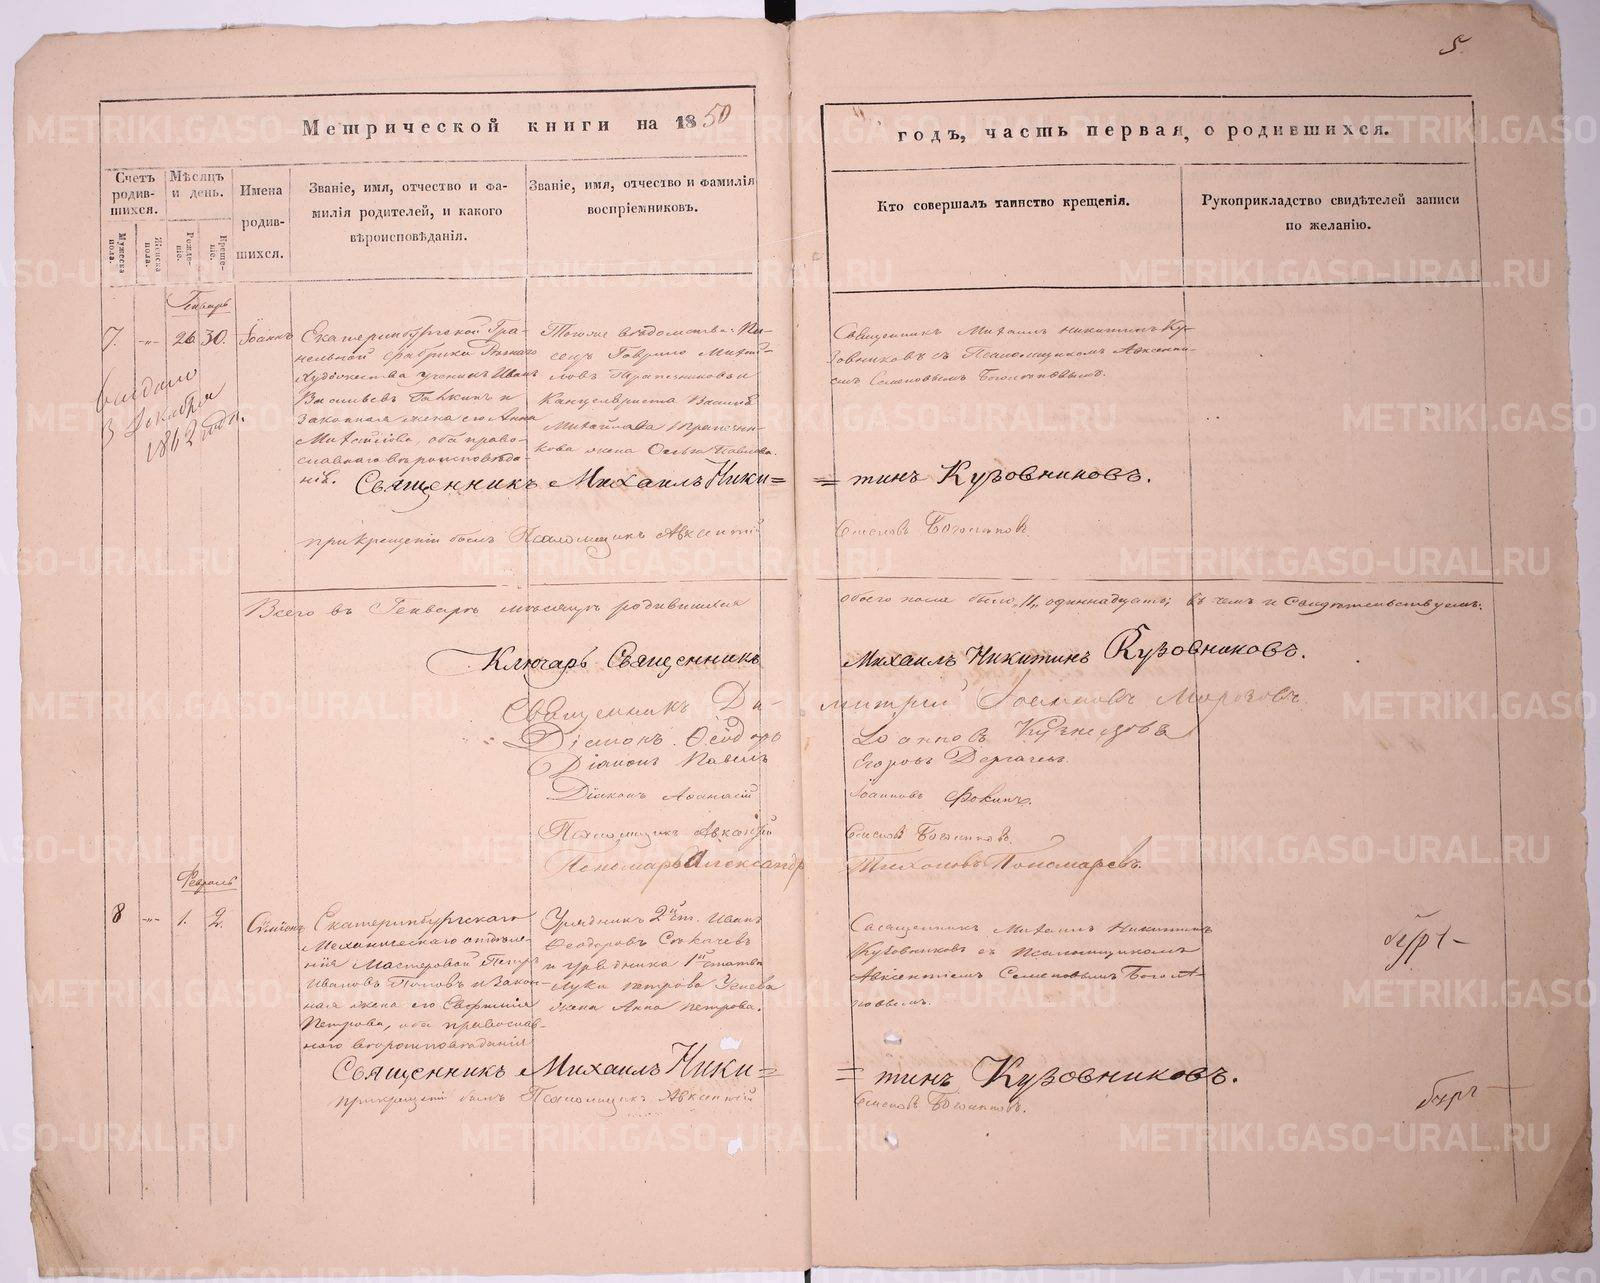 5.
Метрической книги на 1850
годъ, часть первая, о родившихся.
Счетъ родив-шихся.
Мѣсяцъ и день.
Имена родив-шихся.
Званіе, имя, отчество и фа-
милія родителей, и какого
вѣроисповѣданія.
Званіе, имя, отчество и фамилія
воспріемниковъ.
Кто совершалъ таинство крещенія.
Рукоприкладство свидѣтелей записи
по желанію.
Мужеска пола.
Женска пола.
Рожде-ніе.
Креще-ніе.
Генварь
7. -"- 26. 30. Іоаннъ
Екатеринбургской Гра-
нильной фабрики
художества ученикъ Иванъ
Васильевъ и
законная жена его Анна
Михайлова, оба право-
славнаго вѣроисповѣда-
нія.
Тогоже вѣдомства Пи-
сецъ Гаврило Михай-
ловъ Трапезниковъ и
Канцеляриста Василія
Михайлова Трапезни-
кова жена Ольга Павлова.
Священникъ Михаилъ Никитинъ Ку-
зовниковъ съ Псаломщикомъ Авксенті-
емъ Семеновымъ Боголѣповымъ.
3 Декабря
1862 года.
Священникъ Михаилъ Ники=
=тинъ Кузовниковъ.
при крещеніи былъ Псаломщикъ Авксентій
Семеновъ Боголѣповъ
Всего въ Генварѣ мѣсяцѣ родившихся
обоего пола было "11" одиннадцать; въ чемъ и Свидѣтельствуемъ:
Ключарь Священникъ
Михаилъ Никитинъ Кузовниковъ.
Священникъ Ди-
митрій Іоанновъ Морозовъ.
Діаконъ Ѳеодоръ
Іоанновъ Кузнецовъ
Діаконъ Павелъ
Егоровъ Дергачевъ.
Діаконъ Аѳанасій
Іоанновъ Фокинъ.
Псаломщикъ Авксентій
Семеновъ Боголѣповъ.
Пономарь Александръ
Тихоновъ Пономаревъ.
Февраль
8 -"- 1. 2. Сѵмеонъ
Екатеринбургскаго
Механическаго отдѣле-
нія Мастеровой Петръ
Ивановъ Поповъ и закон-
ная жена его
Петрова, оба православ-
наго вѣроисповѣданія
Урядникъ 2й ст. Иванъ
Ѳеодоровъ
и урядника 1й статьи
Луки Петрова
жена Анна Петрова.
Священникъ Михаилъ Никитинъ
Кузовниковъ съ Псаломщикомъ
Авксентіемъ Семеновымъ Боголѣ-
повымъ.
Священникъ Михаилъ Ники=
=тинъ Кузовниковъ.
при крещеніи былъ Псаломщикъ Авксентій
Семеновъ Боголѣповъ.
METRIKI.GASO-URAL.RU